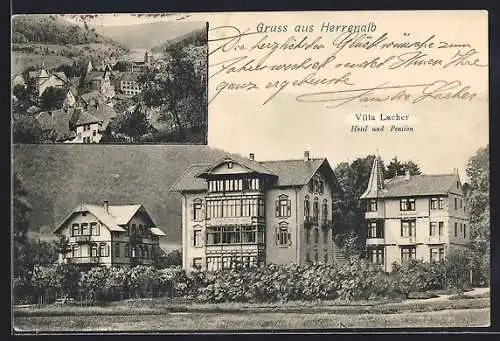 Gruss aus Herrenalb
Die herzlichsten Glückwünsche zum
Jahreswechsel sendet Ihnen Ihre
ganz ergebenste
Familie Lacher
Villa Lacher
Hotel und Pension